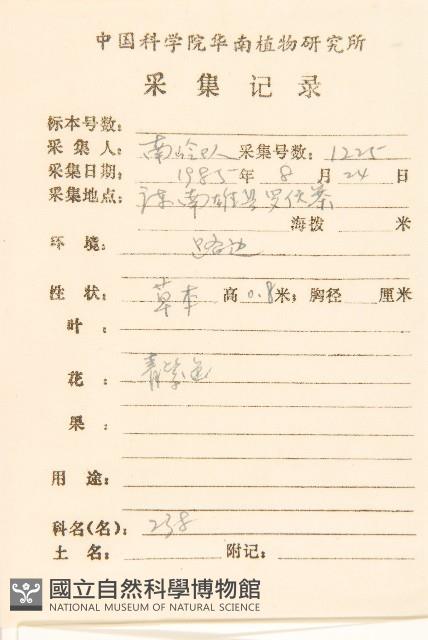 中国科学院华南植物研究所
采集记录
标本号数：
采集人：南岭队 采集号数：1225
采集日期：1985年8月24日
采集地点：南雄县罗伏寨
海拨 米
环境：路边
性状：草本 高0.8米；胸径 厘米
叶：
花：青紫色
果：
用途：
科名(名)：238
土名： 附记：
國立自然科學博物館
NATIONAL MUSEUM OF NATURAL SCIENCE